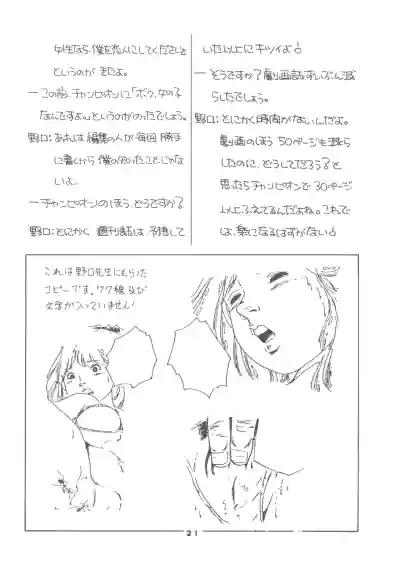 女性なら、僕を恋人にしてください」
というのが きたよ。
― この前、チャンピオンに「ボク、女の子
なんですよ。」というのがのってたでしょう。
野口:あれは 編集の人が毎回 勝手
に書くから 僕の知ったことじゃな
いよ。
― チャンピオンのほう、どうですか?
野口:とにかく 週刊誌は、予想して
いた以上にキツイよ!
― そうですか?劇画誌ずいぶん減
らしたでしょう。
野口:とにかく時間がないんだよ。
劇画のほう 50ページも減らし
たのに、どうしてだろう?と
思ったらチャンピオンで30ページ
以上ふえてるんだよね。これで
は、楽になるはずがない!
これは野口先生にもらった
コピーです。ワク線及び
文字が入っていません!
21